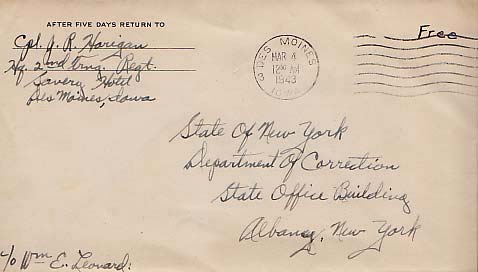 AFTER FIVE DAYS RETURN TO
Cpl. J. R. Horigan
Hq. 2nd Trng. Regt.
Savery Hotel
Des Moines, Iowa
DES MOINES
MAR 4
12 30 AM
1943
IOWA
3
Free
State Of New York
Department Of Correction
State Office Building
Albany, New York
c/o Wm E. Leonard: